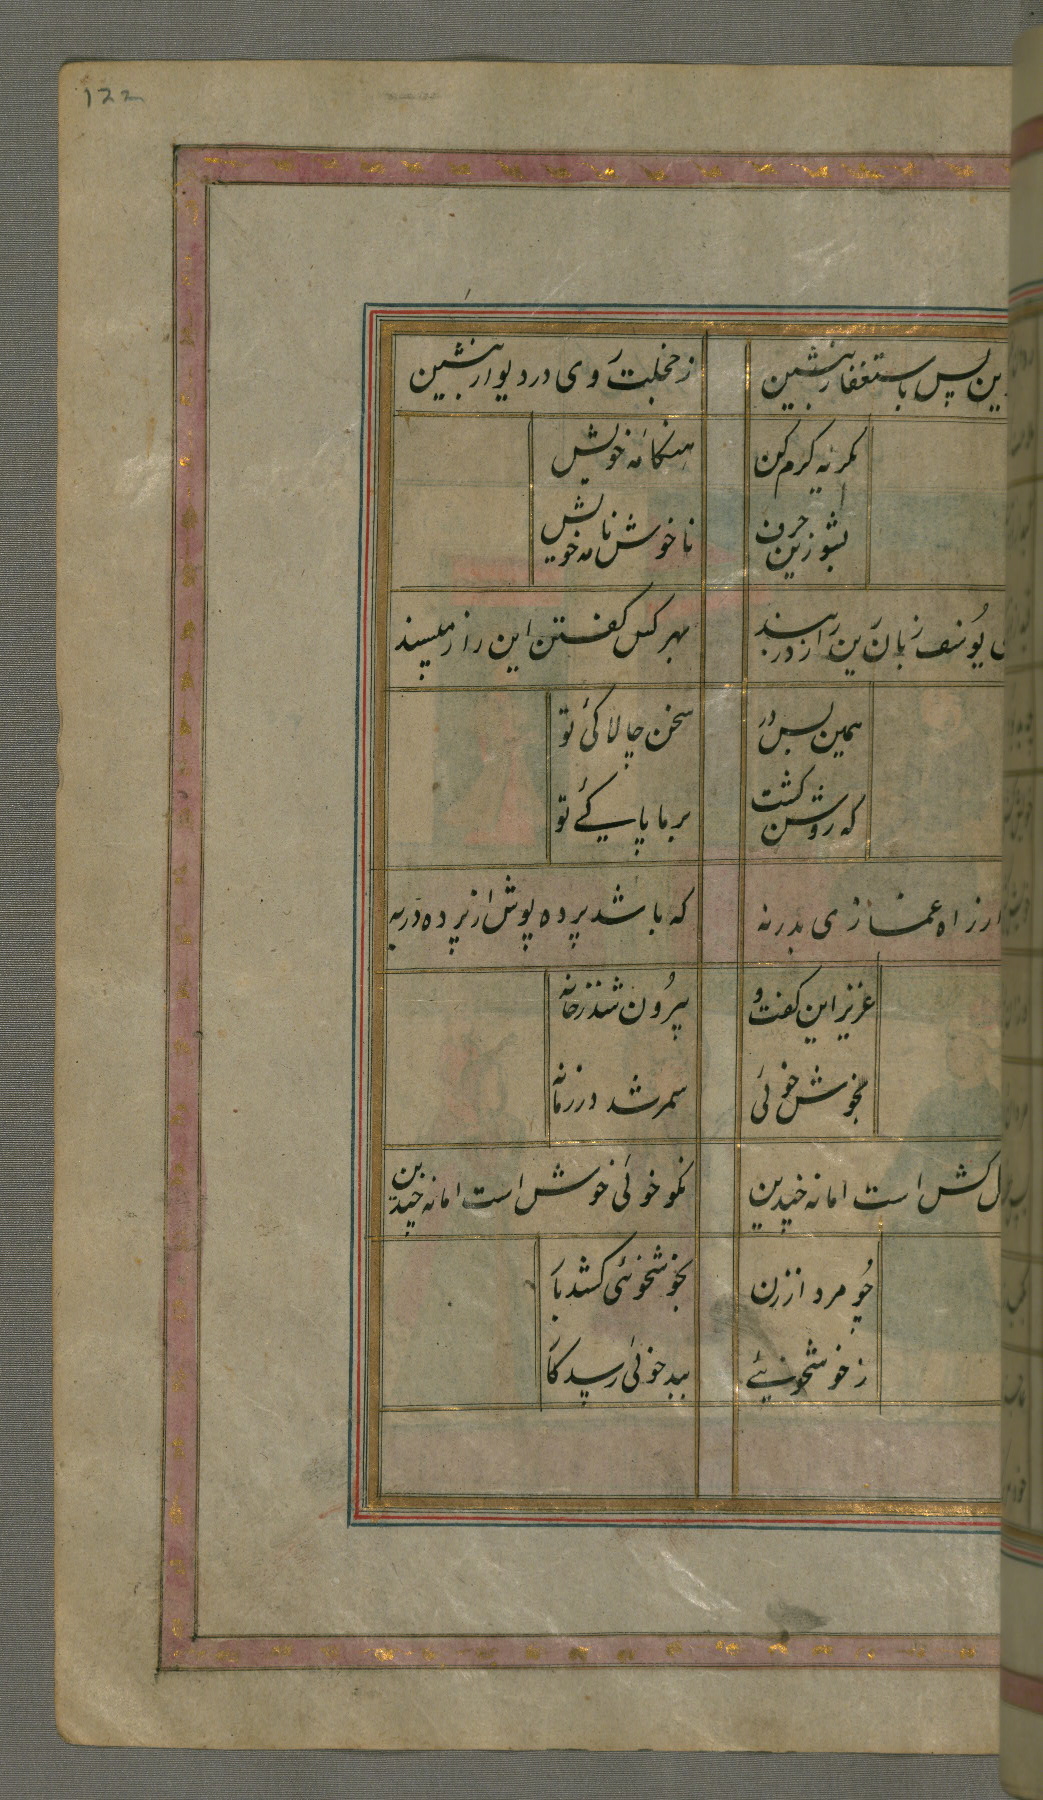 122
ین پس باستغفار بنشین
ز خجلت روی در دیوار بنشین
بگریه کرم کن
هنکامه خویش
بشو زین حرف
ناخوش نامه خویش
یوسف زبان زین راز در بند
بهر کس کفتن این راز مپسند
همین بس در
سخن چالاکئ تو
که روشن کشت
بر ما پاکئ تو
از راه غمازی بدر نه
که باشد پرده پوش از پرده در به
عزیز این کفت و
بیرون شد ز خانه
بخوش خوئی
سمر شد در زمانه
کش است اما نه چندین
نکو خوئی خوش است اما نه چندین
چو مرد از زن
بخوشخوئی کشد بار
ز خوشخوئی
ببد خوئی رسد کار